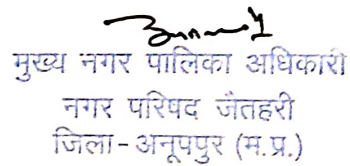 मुख्य नगर पालिका अधिकारी
नगर परिषद जैतहरी
जिला-अनूपपुर (म.प्र.)